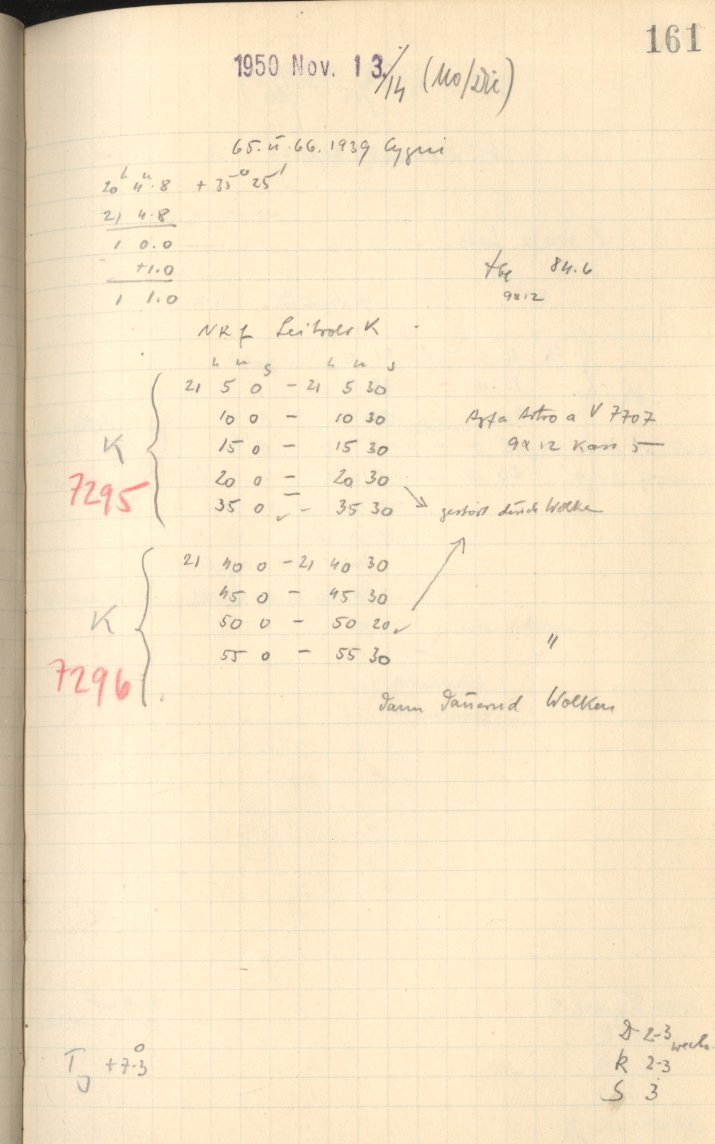 161
1950 Nov. 13./14 (Mo/Die)
65. u. 66. 1939 Cygni
20h 4m.8 + 35° 25'
21 4.8
1 0.0
+1.0
1 1.0
84.6
9x12
NRf K
h m s h m s
21 5 0 - 21 5 30
10 0 - 10 30
15 0 - 15 30
20 0 - 20 30
35 0 - 35 30
K
7295
Agfa Astro a V 7707
9x12 Kass 5
gestört durch Wolken
21 40 0 - 21 40 30
45 0 - 45 30
50 0 - 50 20
55 0 - 55 30
K
7296
"
dann dauernd Wolken
T +7.3°
D 2-3
R 2-3
S 3